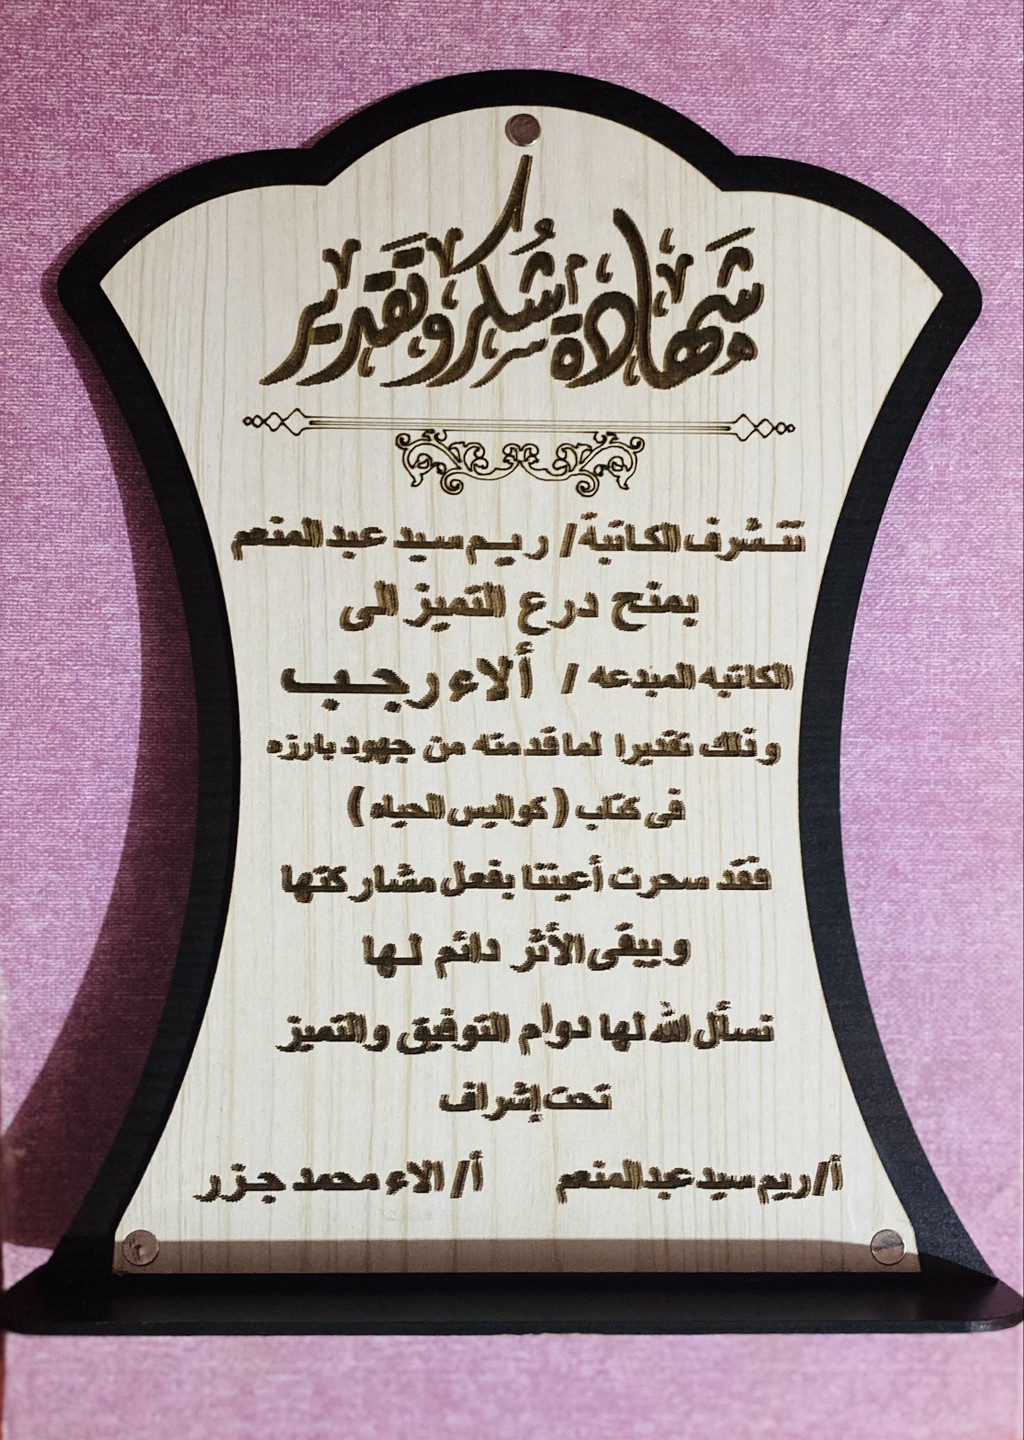 شهادة شكر وتقدير
تتشرف الكاتبة/ ريم سيد عبد المنعم
بمنح درع التميز الى
الكاتبه المبدعه / ألاء رجب
و ذلك تقديرا لما قدمته من جهود بارزه
فى كتاب ( كواليس الحياه )
فقد سحرت أعيننا بفعل مشاركتها
و يبقى الأثر دائم لها
نسأل الله لها دوام التوفيق والتميز
تحت إشراف
أ/ ريم سيد عبدالمنعم أ/ الاء محمد جزر